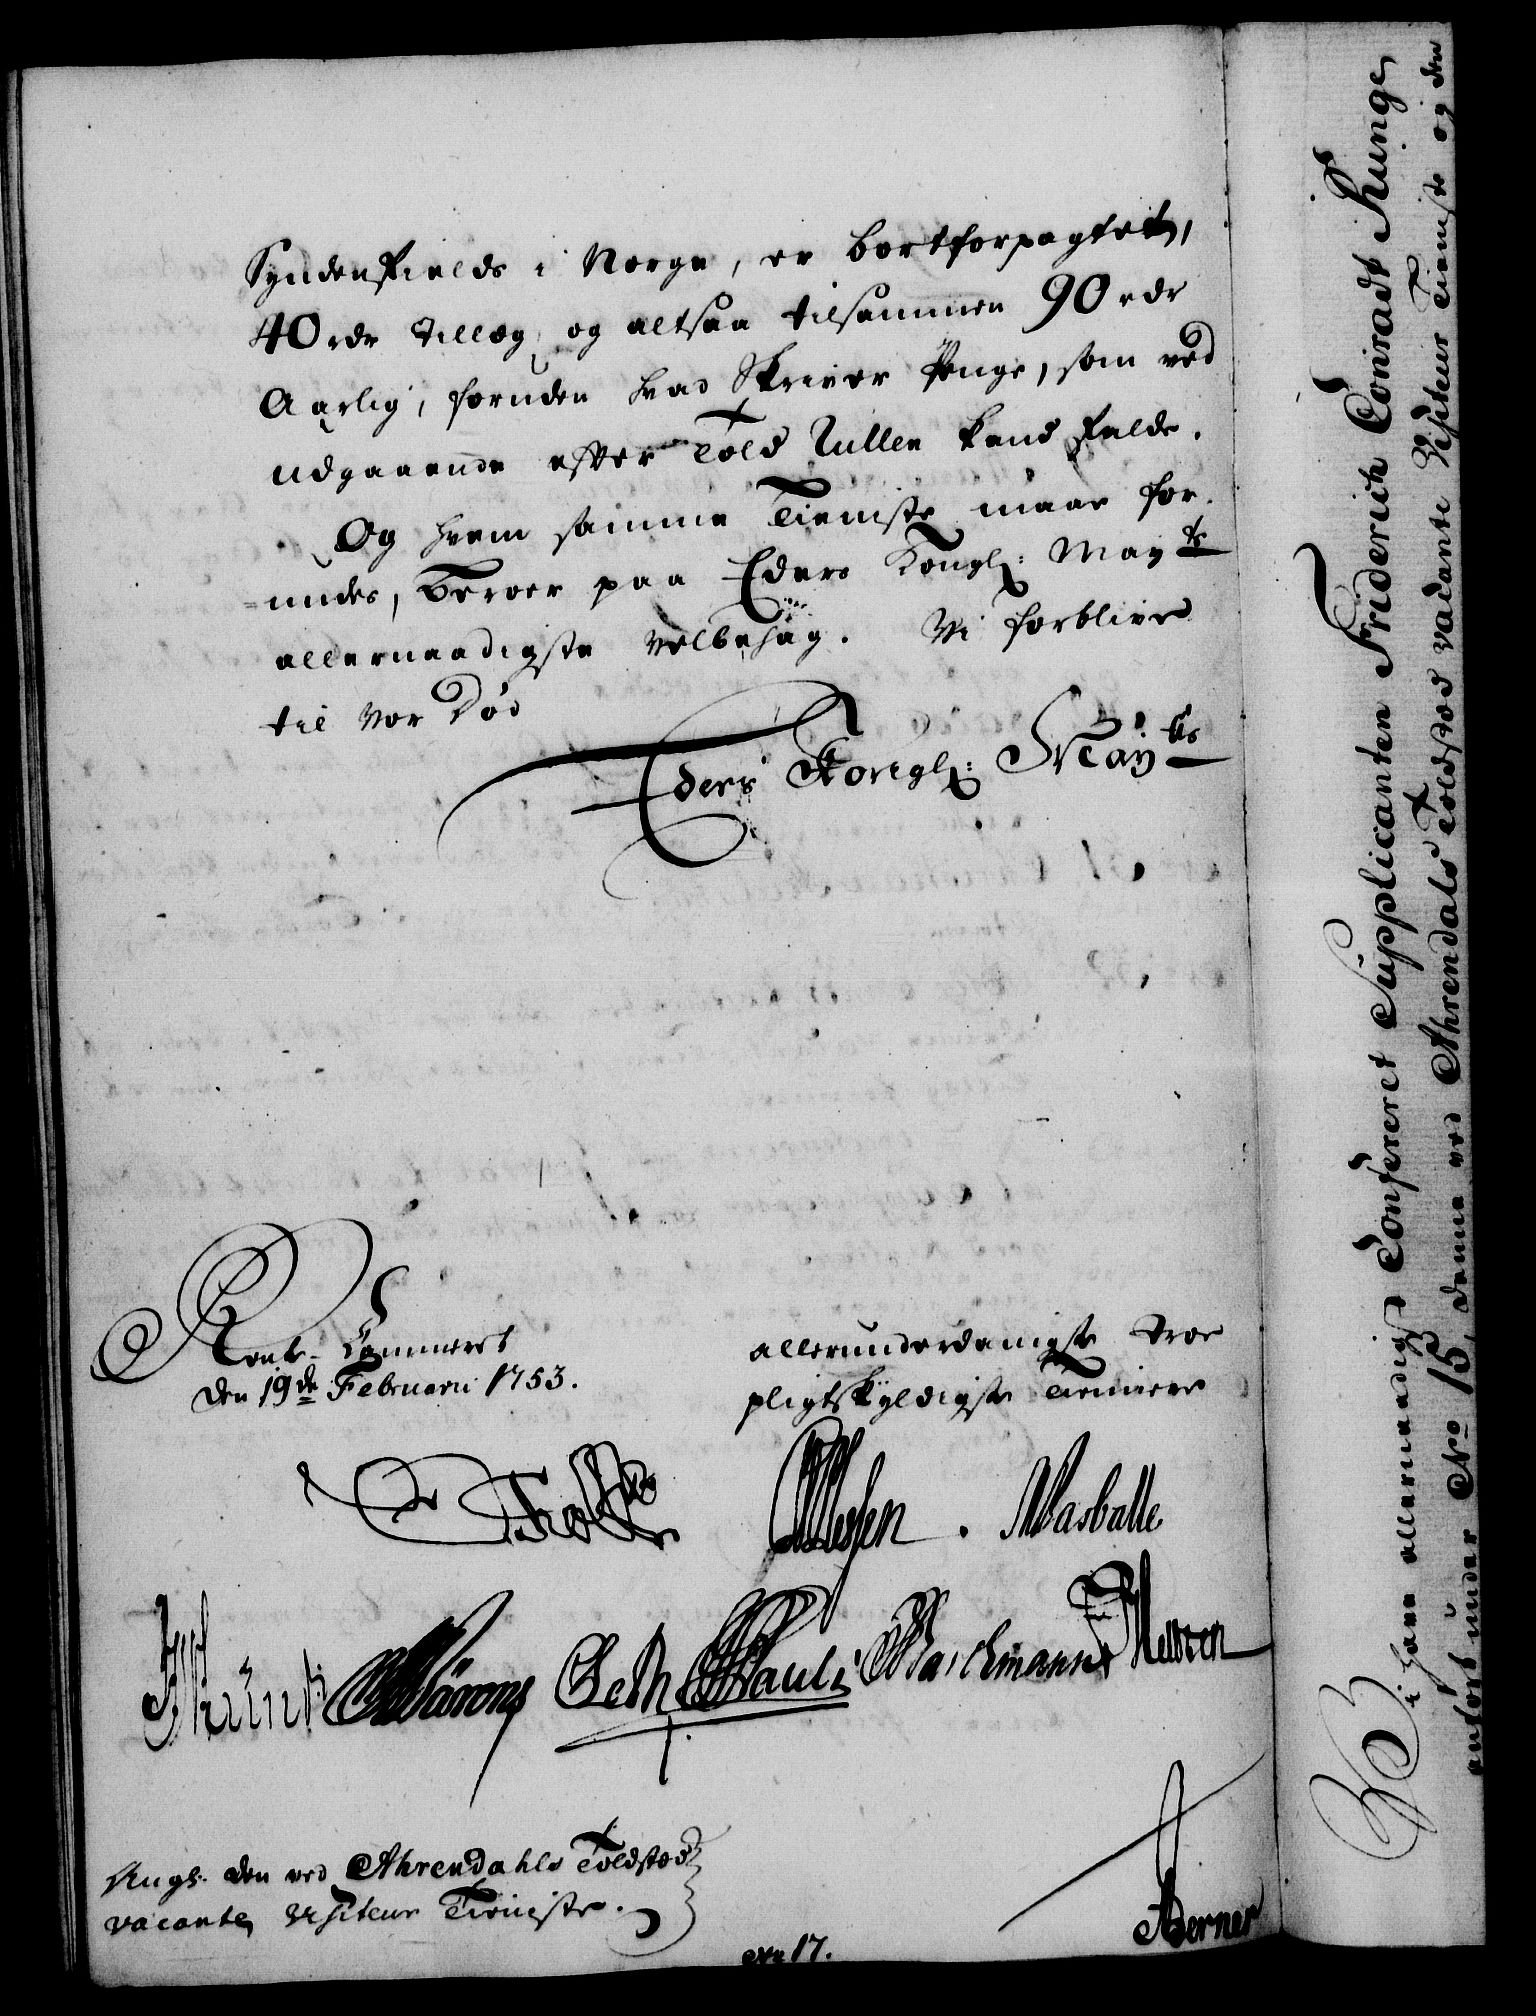 Syndenfields i Norge, er bortforpagtet,
40 rdr Tillæg, og altsaa tilsammen 90 rdr
Aarlig, foruden hvad Skriver Penge, som ved
udgaaende efter Told Rullen kand falde.
Og hvem samme Tieniste maae for-
undes, beroer paa Eders Kongl: May:ts
allernaadigste velbehag. Vi forblive
til vor Død
Eders Kongl: May:ts
Rente-Kammeret
den 19de Februarii 1753.
allerunderdanigste troe
pligtskyldigste Tiennere
Masballe
Pauli
Barchmann
Ang: den ved Ahrendahls Toldsted
vacante Visiteur Tieniste.
Berner
No 17.
Vi have allernaadigst Confereret Supplicanten Friderich Conradt Runge,
anført under No 15, denne ved Ahrendals Toldsted vacante Visiteur Tieniste og den